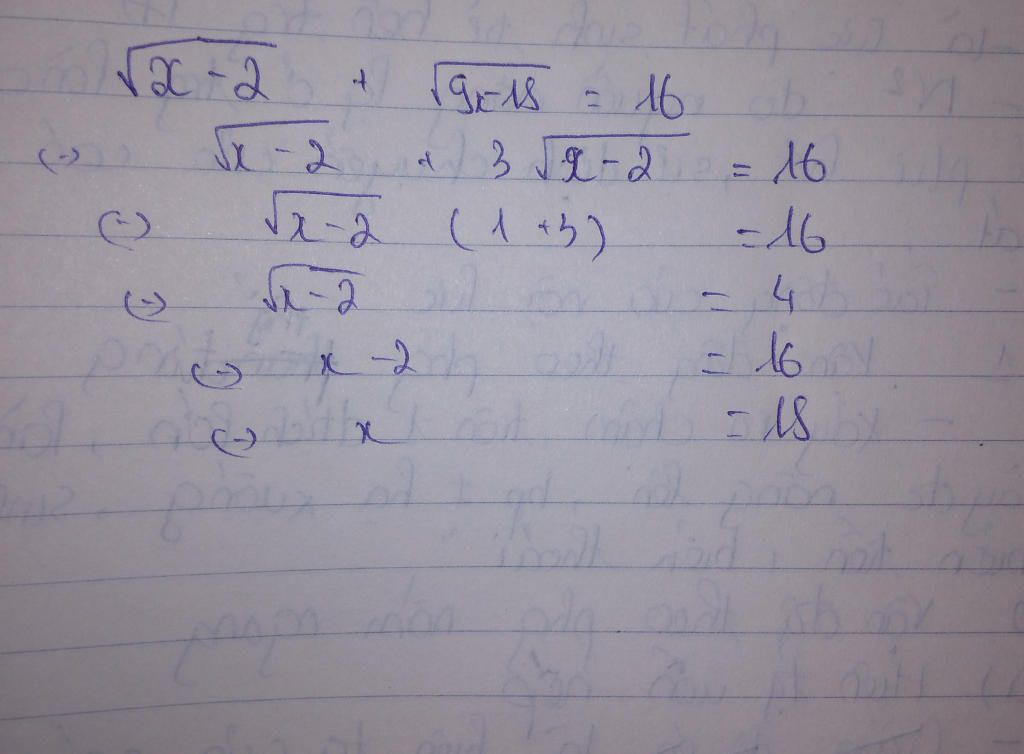 √x-2 + √9x-18 = 16
(-) √x-2 + 3 √x-2 = 16
(-) √x-2 (1+3) = 16
(-) √x-2 = 4
(-) x-2 = 16
(-) x = 18